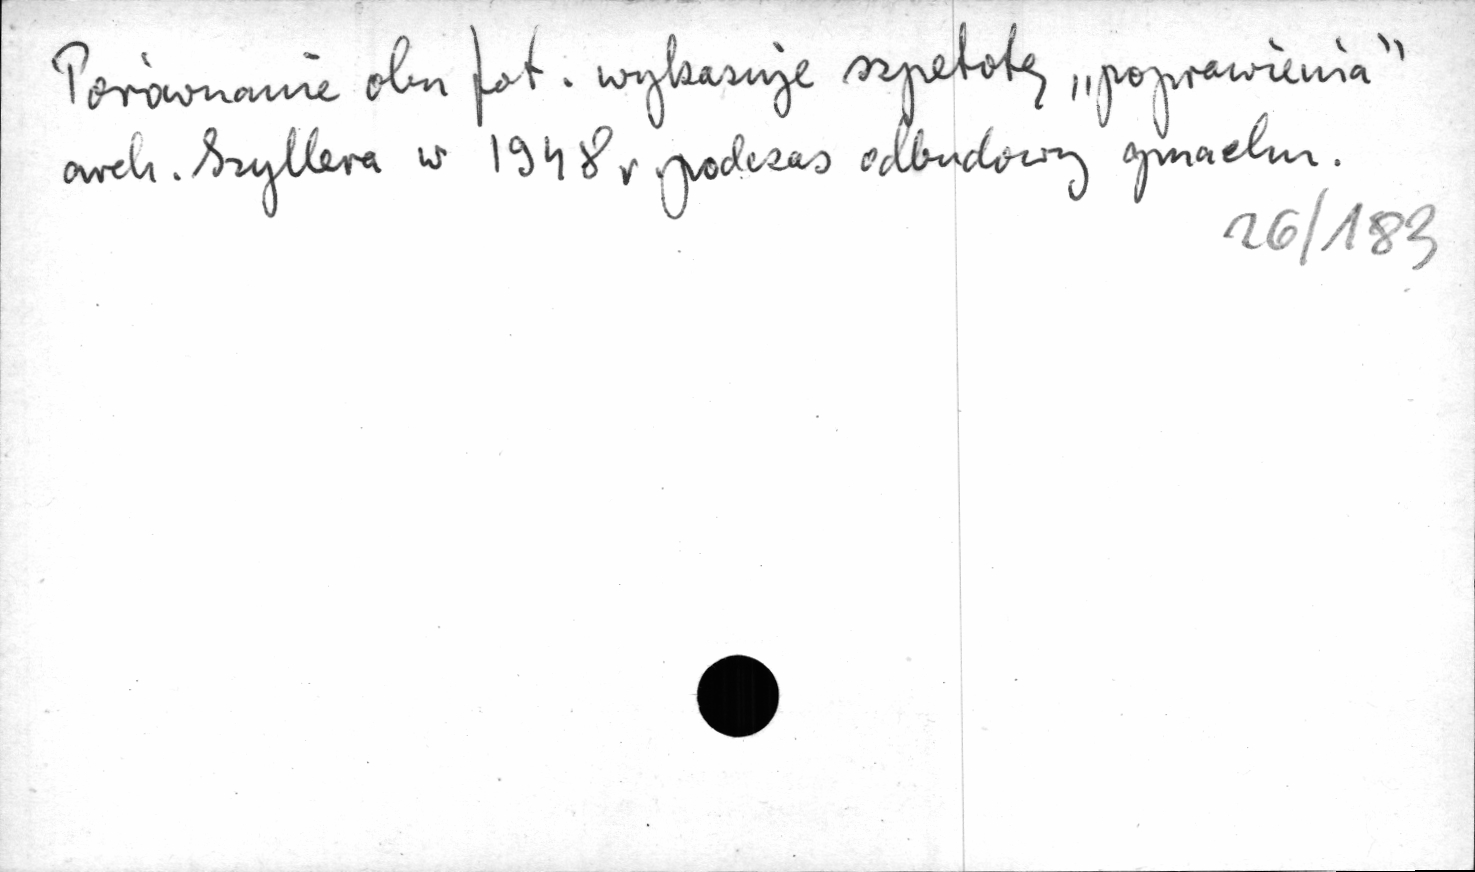 Porównanie obu fot. wykazuje szpetotę „poprawienia”
arch. Szyllera w 1948 r podczas odbudowy gmachu.
26/183